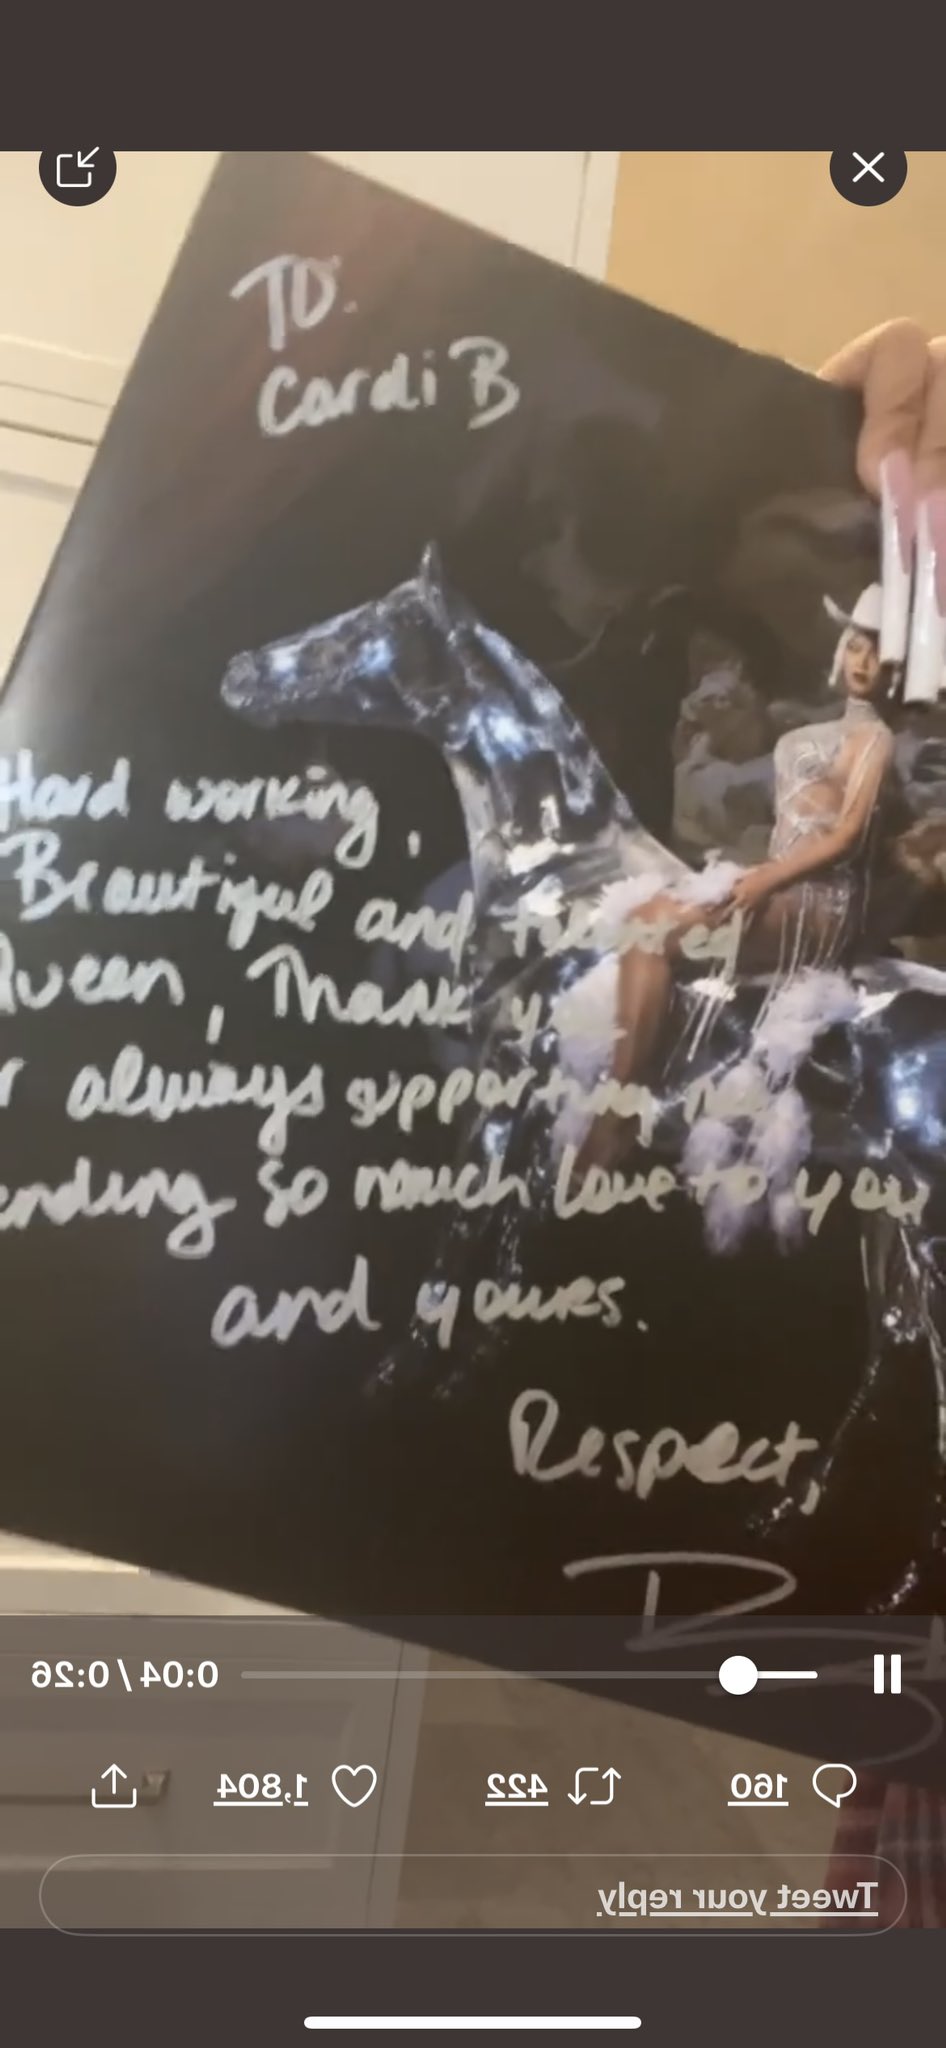 TO.
Cardi B
Hard working,
Beautiful and talented
Queen, Thank you
r always supporting me
ending so much love to you
and yours.
Respect,
0:04 / 0:26
160 422 1,804
Tweet your reply